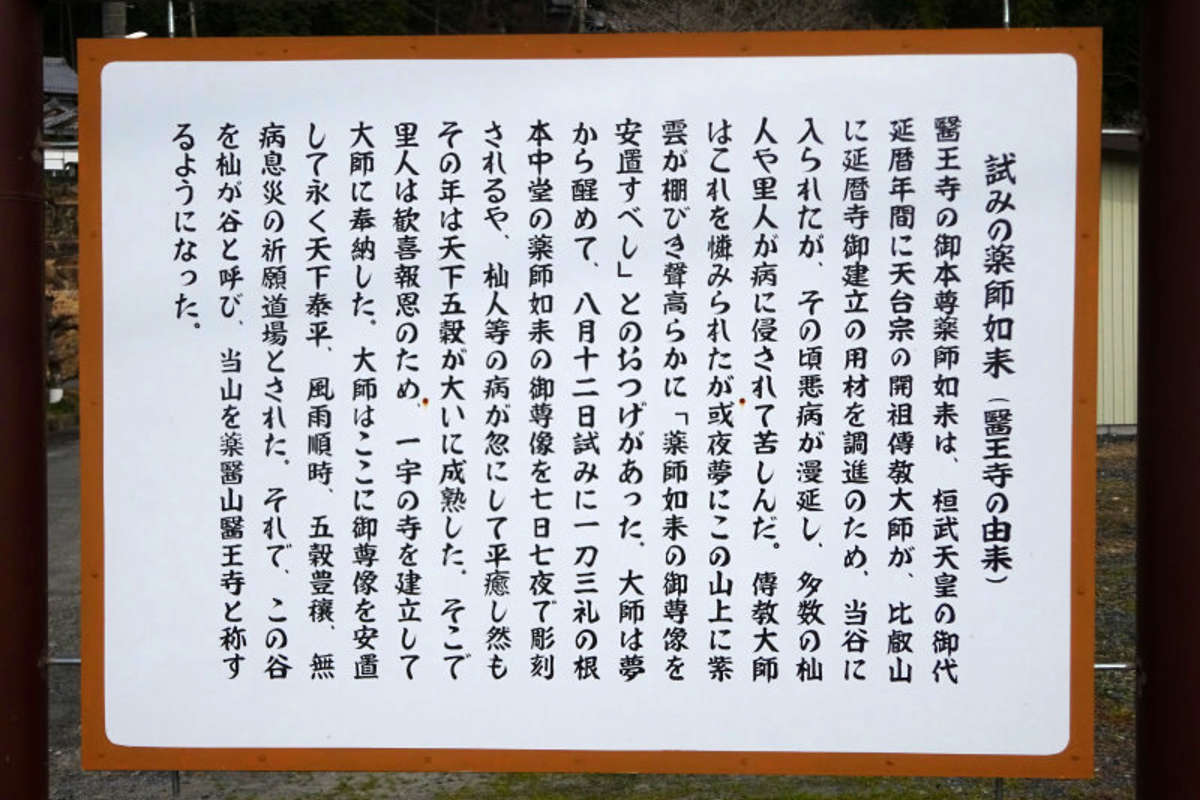 試みの薬師如来（醫王寺の由来）
醫王寺の御本尊薬師如来は、桓武天皇の御代
延暦年間に天台宗の開祖傳教大師が、比叡山
に延暦寺御建立の用材を調進のため、当谷に
入られたが、その頃悪病が漫延し、多数の杣
人や里人が病に侵されて苦しんだ。傳教大師
はこれを憐みられたが或夜夢にこの山上に紫
雲が棚びき聲高らかに「薬師如来の御尊像を
安置すべし」とのおつげがあった。大師は夢
から醒めて、八月十二日試みに一刀三礼の根
本中堂の薬師如来の御尊像を七日七夜で彫刻
されるや、杣人等の病が忽にして平癒し然も
その年は天下五穀が大いに成熟した。そこで
里人は歓喜報恩のため、一宇の寺を建立して
大師に奉納した。大師はここに御尊像を安置
して永く天下泰平、風雨順時、五穀豊穣、無
病息災の祈願道場とされた。それで、この谷
を杣が谷と呼び、当山を薬醫山醫王寺と称す
るようになった。